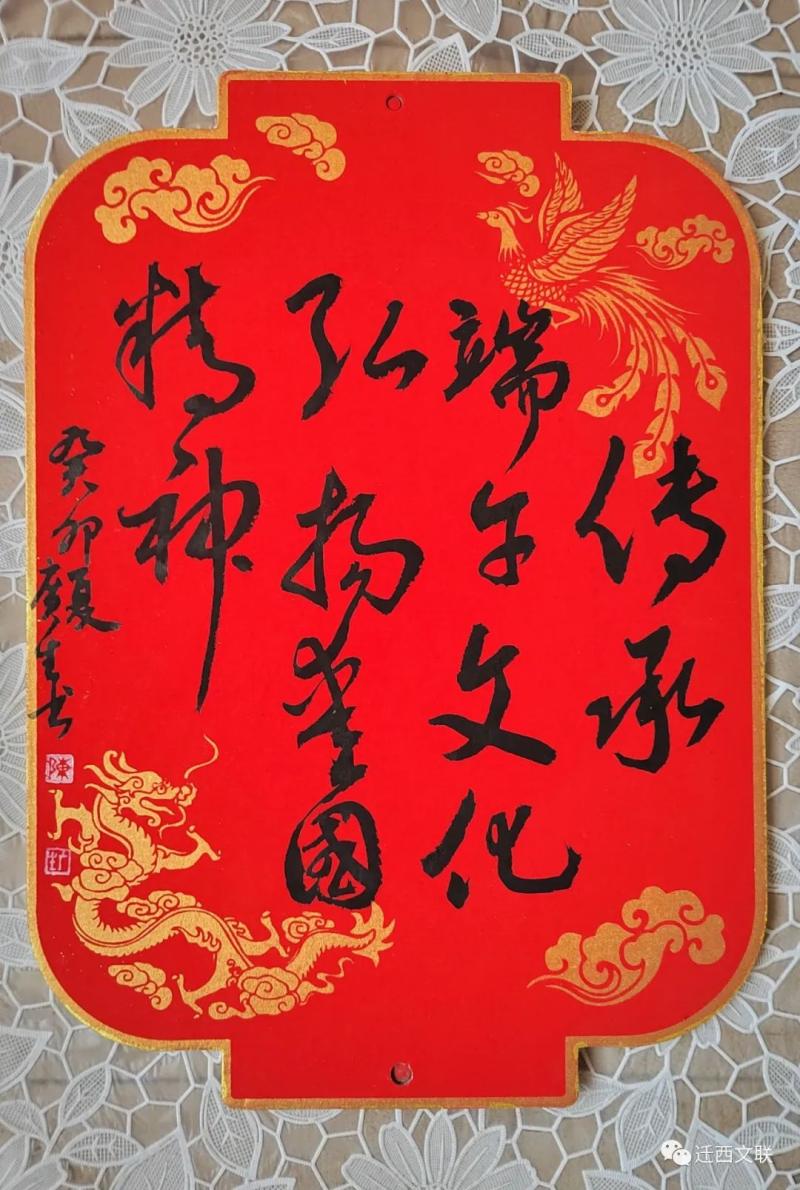 传承
端午文化
弘扬爱國
精神
癸卯夏
广生书
陳
迁西文联